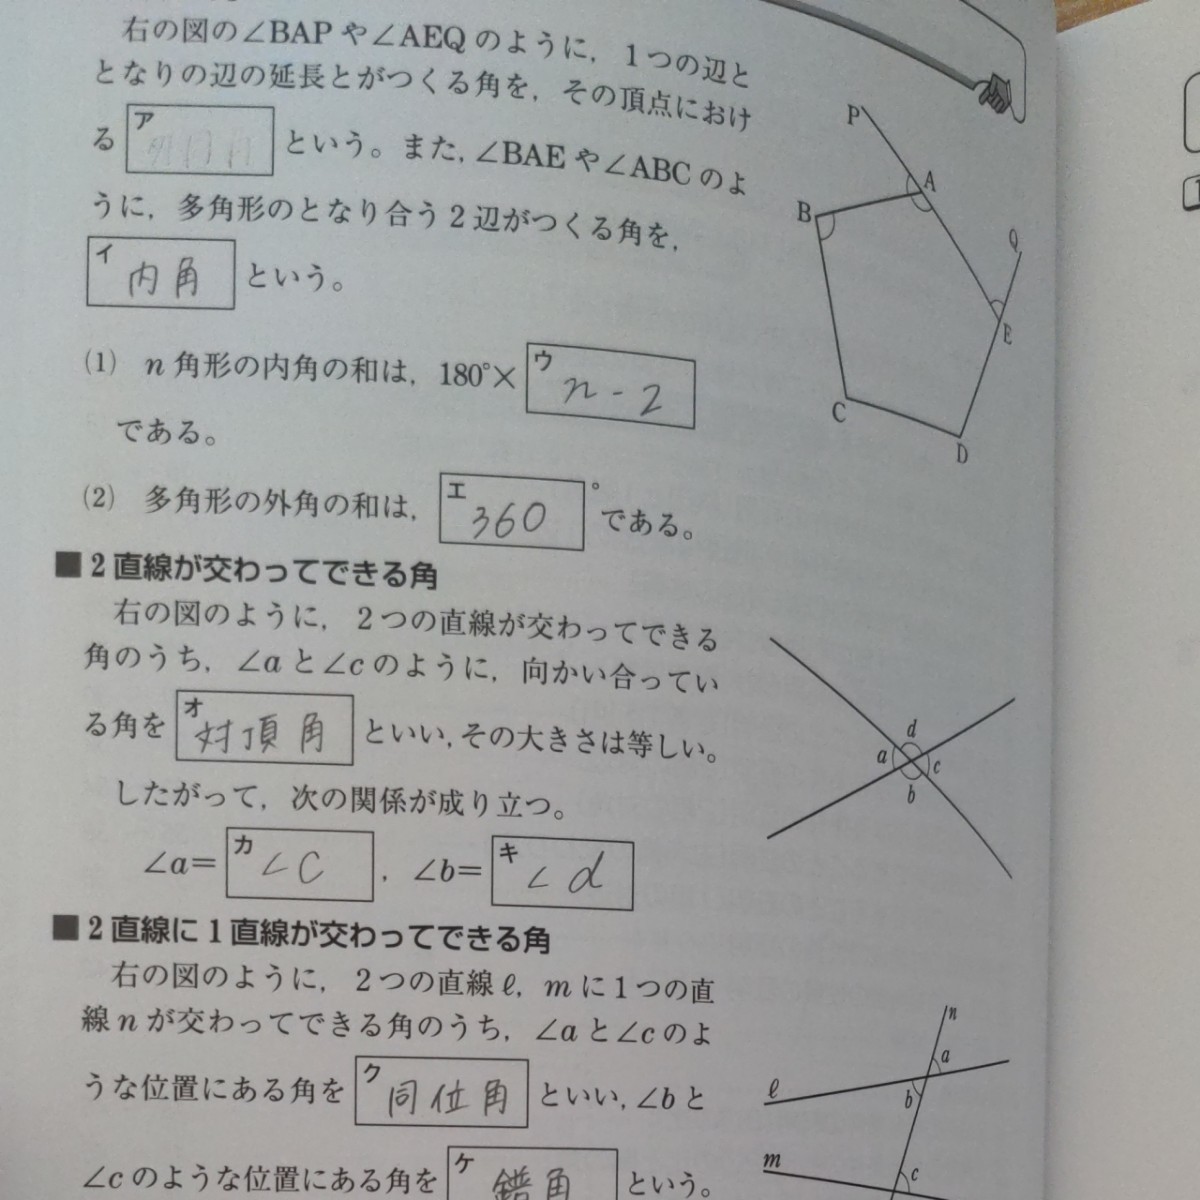 右の図の∠BAPや∠AEQのように，1つの辺と
となりの辺の延長とがつくる角を，その頂点におけ
る ア という。また，∠BAEや∠ABCのよ
うに，多角形のとなり合う2辺がつくる角を，
イ 内角 という。
(1) n角形の内角の和は，180°× ウ n-2
である。
(2) 多角形の外角の和は， エ 360 °である。
P
A
B
Q
E
C
D
■2直線が交わってできる角
右の図のように，2つの直線が交わってできる
角のうち，∠aと∠cのように，向かい合ってい
る角を オ 対頂角 といい，その大きさは等しい。
したがって，次の関係が成り立つ。
∠a= カ ∠c ，∠b= キ ∠d
d
a
c
b
■2直線に1直線が交わってできる角
右の図のように，2つの直線ℓ，mに1つの直
線nが交わってできる角のうち，∠aと∠cのよ
うな位置にある角を ク 同位角 といい，∠bと
∠cのような位置にある角を ケ 錯角 という。
n
a
ℓ
b
m
c